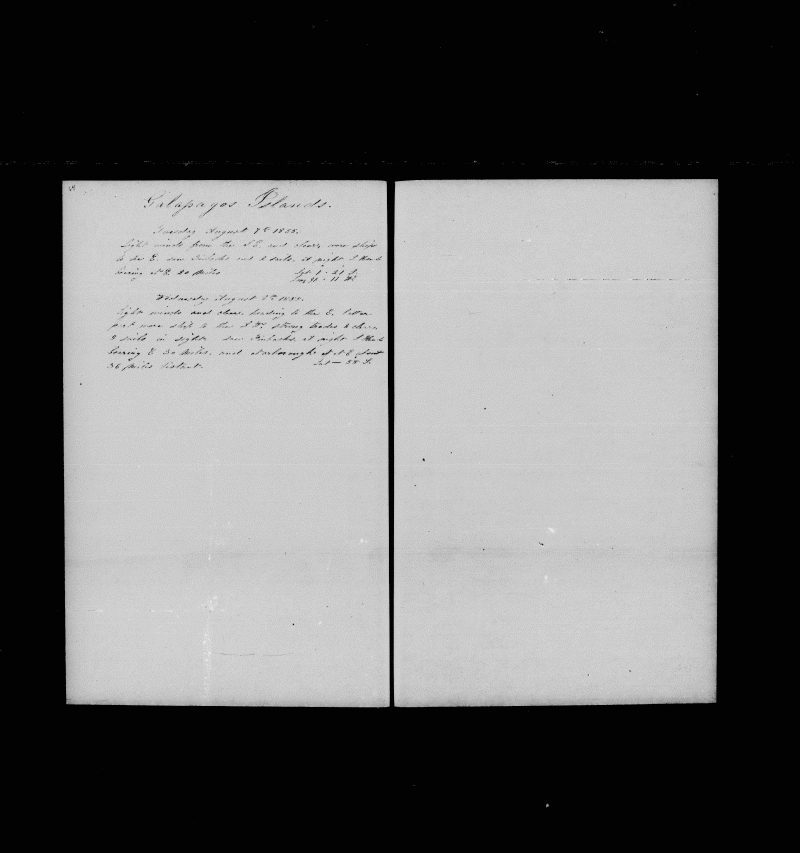 Galapagos Islands.
Tuesday August 7th 1855.
Light winds from the S.E. and clear, wore ship
to the E. saw finbacks and 2 sails, at night I think
bearing N.E. 20 Miles Lat 1 - 21 S.
Long 91 - 11 W.
Wednesday August 8th 1855.
Light winds and clear, heading to the E. latter
part wore ship to the strong trades & clear,
2 sails in sight saw finbacks, at night
bearing E. 30 Miles, and Narborough at N.E. about
36 Miles distant. Lat 38 S.